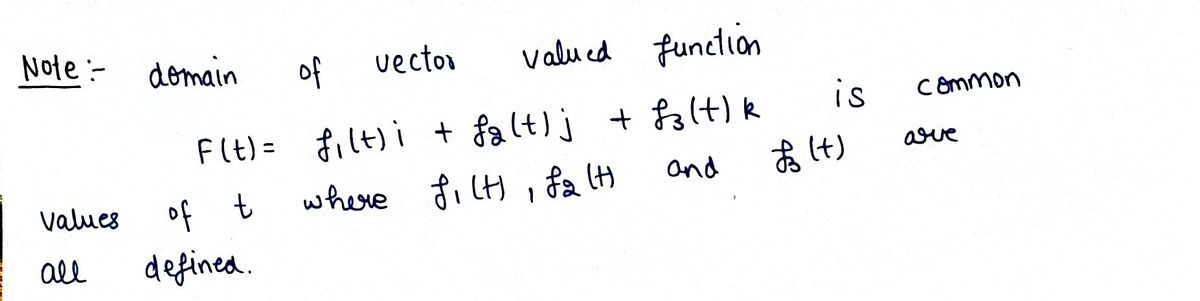 Note :- domain of vector valued function
F(t) = f₁(t) i + f₂(t) j + f₃(t) k is common
values of t where f₁(t), f₂(t) and f₃(t) are
all defined.